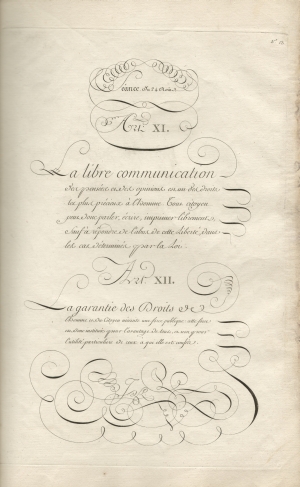 Art. XI.
La libre communication
des pensées et des opinions est un des droits
les plus précieux à l'homme. Tout citoyen
peut donc parler, écrire, imprimer librement,
sauf à répondre de l'abus de cette liberté, dans
les cas déterminés par la Loi.
Art XII.
La garantie des Droits de
l'homme et du Citoyen nécessite une force publique; cette force
est donc instituée pour l'avantage de tous, et non pour
l'utilité particulière de ceux à qui elle est confiée.